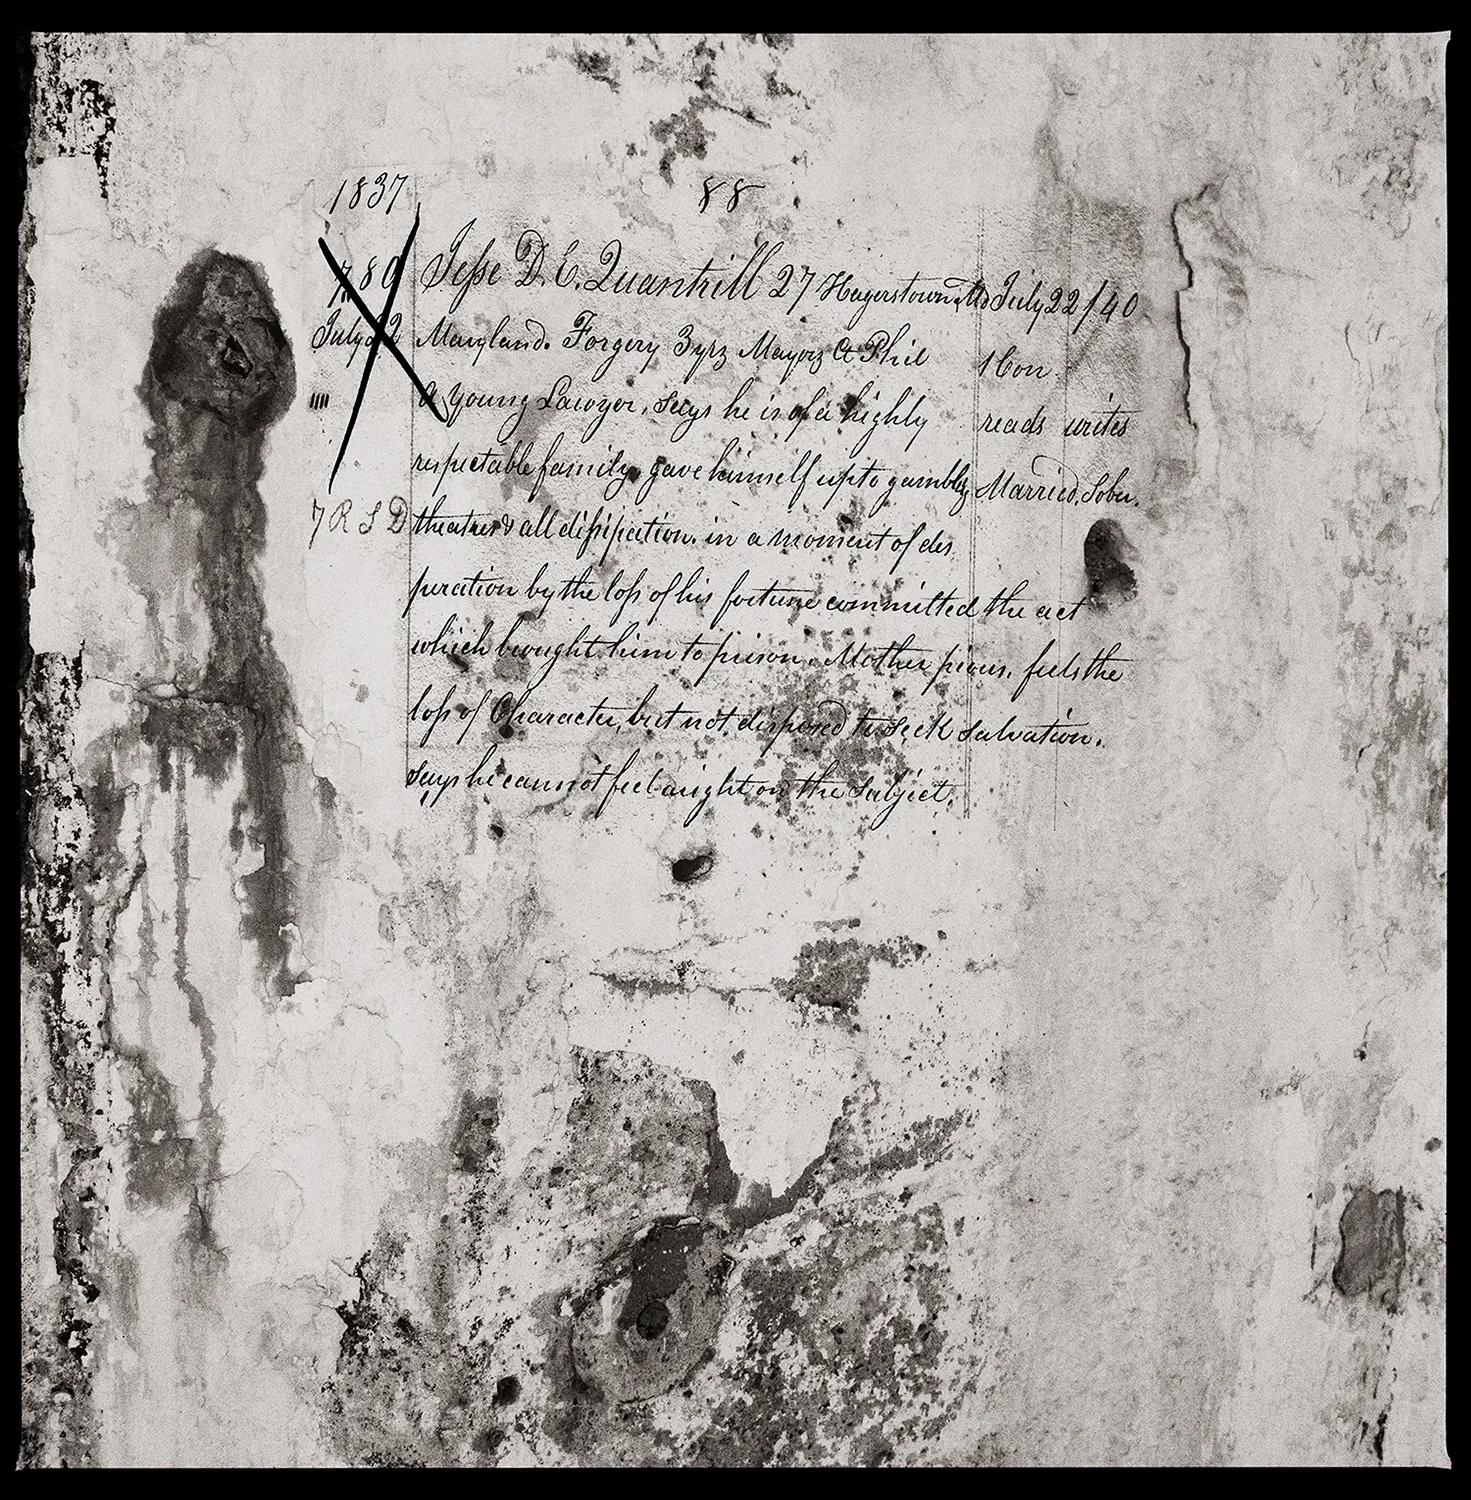 1837 88
789 Jesse D. E. Quantrill 27 Hagerstown Md July 22/40
July 22 Maryland. Forgery 3 yrs Mayors Ct Phil 1 Con
A young Lawyer, says he is of a highly reads writes
respectable family, gave himself up to gambly Married, Sober.
7 R S D theatres & all dissipation. in a moment of des
peration by the loss of his fortune committed the act
which brought him to prison. Mother pious. feels the
loss of Character, but not disposed to seek salvation.
says he cannot feel aught on the subject.